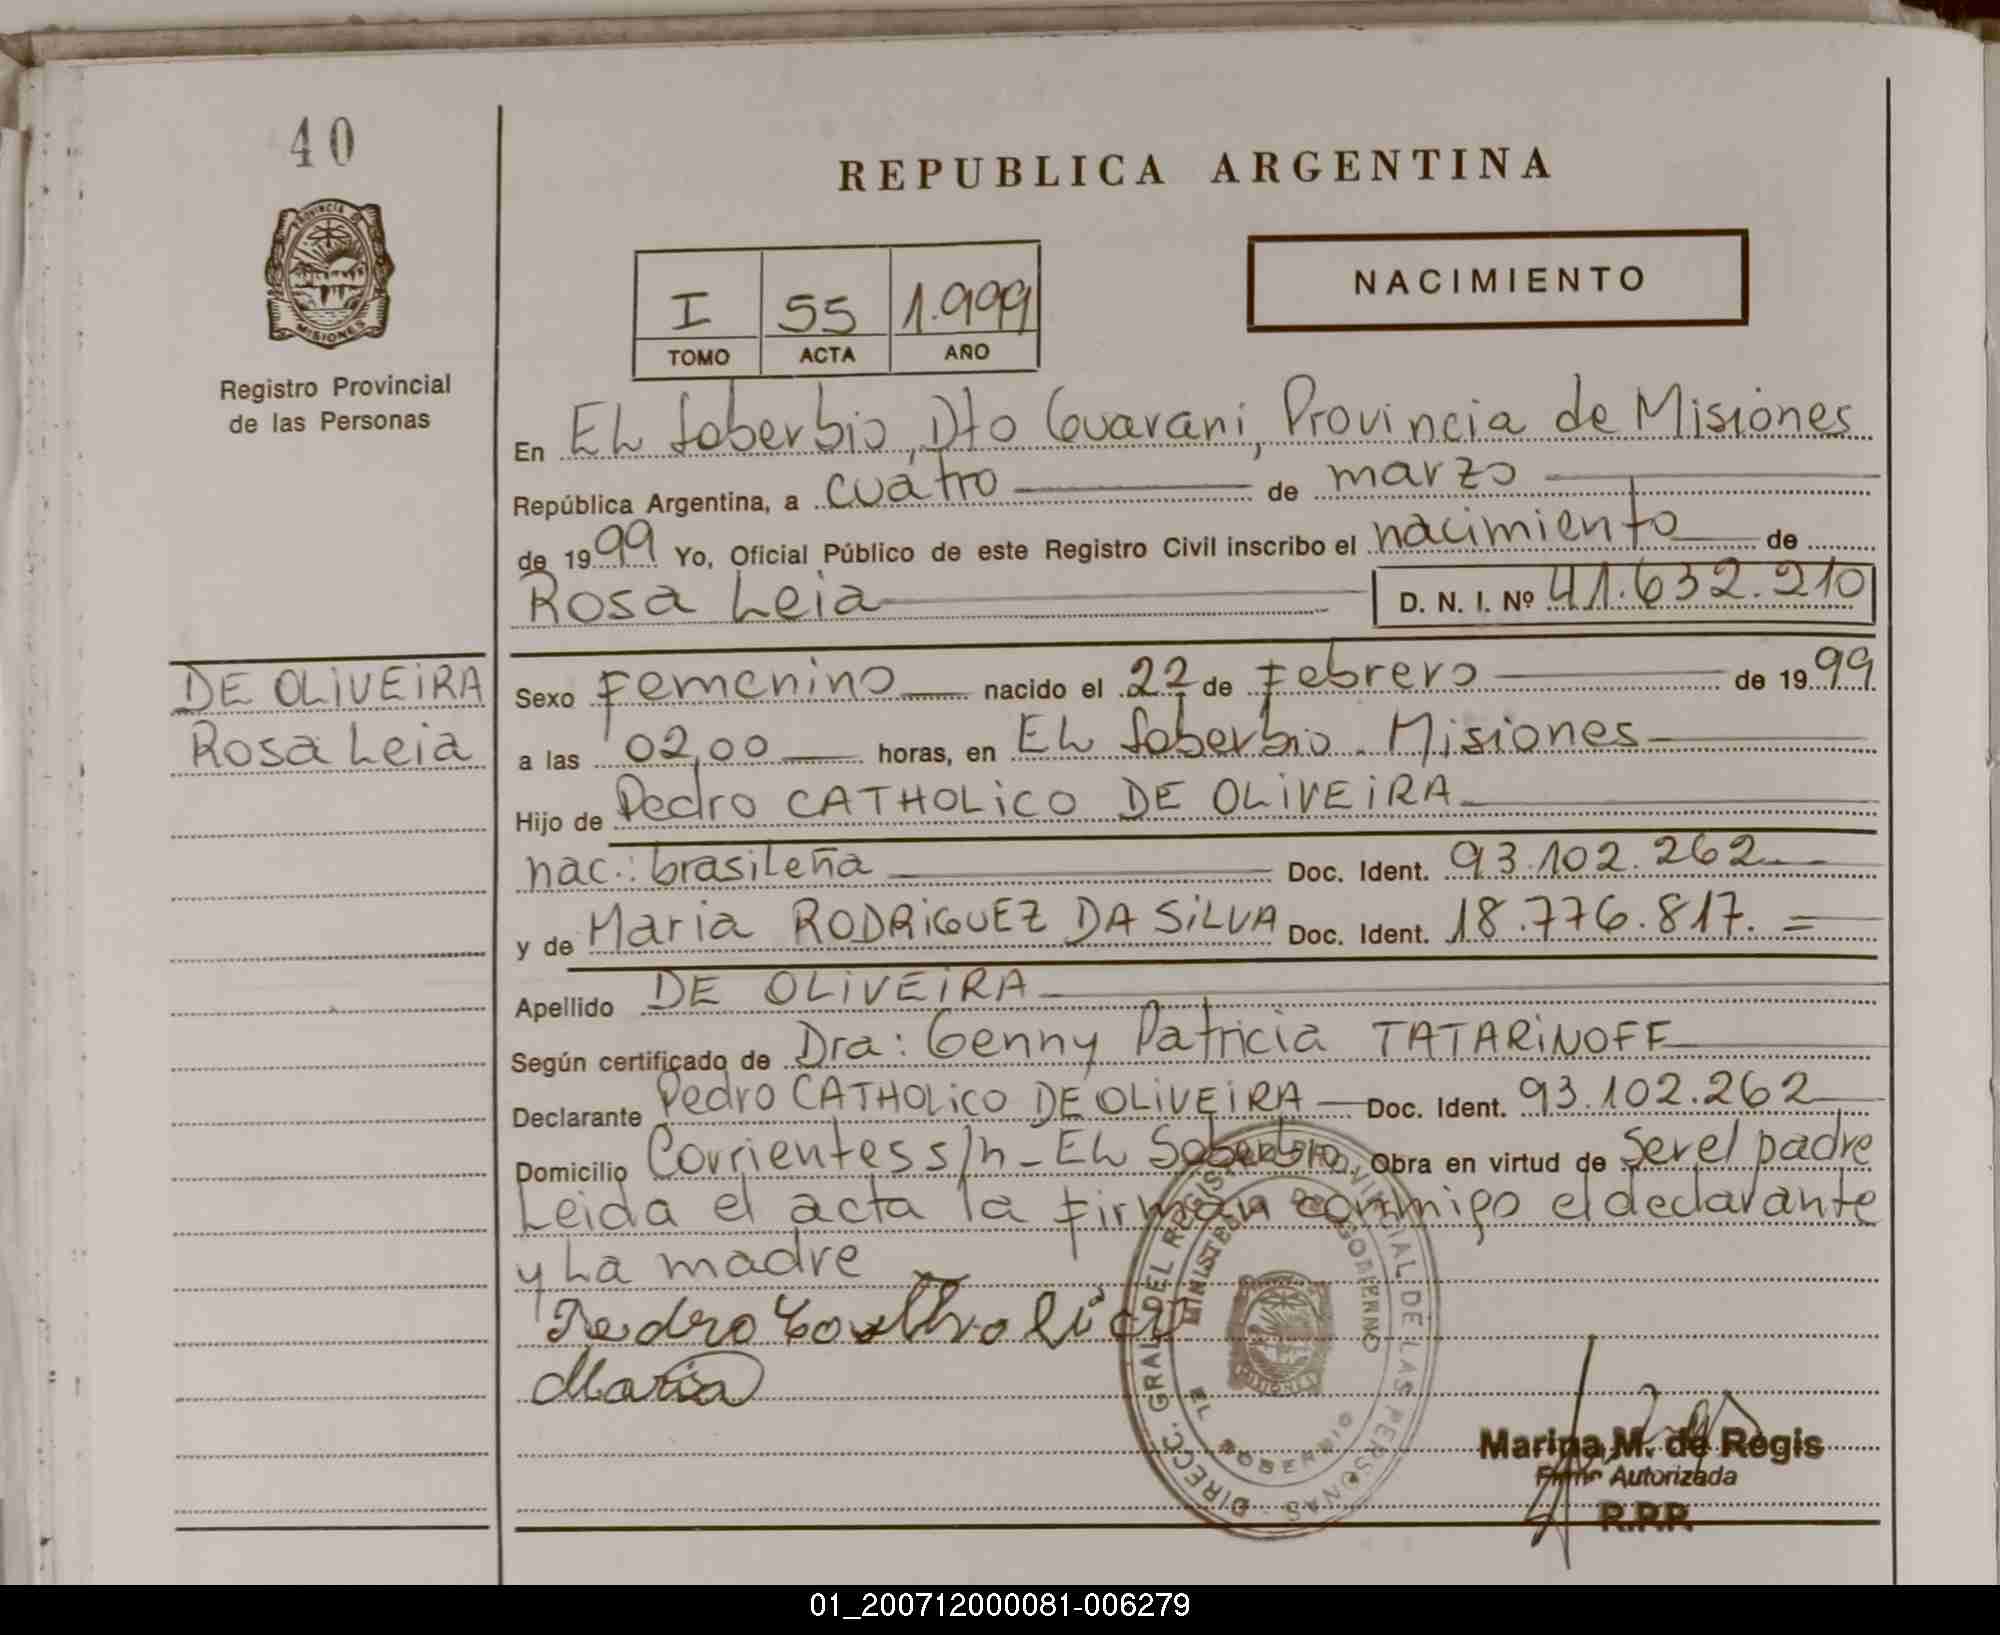 40
PROVINCIA DE
MISIONES
Registro Provincial
de las Personas
REPUBLICA ARGENTINA
I 55 1.999
TOMO ACTA AÑO
NACIMIENTO
En EL Soberbio, Dto Guarani, Provincia de Misiones
República Argentina, a cuatro de marzo
de 1999 Yo, Oficial Público de este Registro Civil inscribo el nacimiento de
Rosa Leia D. N. I. Nº 41.632.210
DE OLIVEIRA
Rosa Leia
Sexo Femenino nacido el 22 de Febrero de 1999
a las 02,00 horas, en EL Soberbio. Misiones
Hijo de Pedro CATHOLICO DE OLIVEIRA
nac.: brasileña Doc. Ident. 93.102.262
y de Maria RODRIGUEZ DA SILVA Doc. Ident. 18.776.817. =
Apellido DE OLIVEIRA
Según certificado de Dra: Genny Patricia TATARINOFF
Declarante Pedro CATHOLICO DE OLIVEIRA Doc. Ident. 93.102.262
Domicilio Corrientes s/n - EL Soberbio. Obra en virtud de ser el padre
Leida el acta la firman conmigo el declarante
y La madre
Pedro Catholico
Maria
DIRECC. GRAL. DEL REGISTRO PROVINCIAL DE LAS PERSONAS
MINISTERIO DE GOBIERNO
MISIONES
EL SOBERBIO
Marina M. de Regis
Firma Autorizada
R.P.P.
01_200712000081-006279